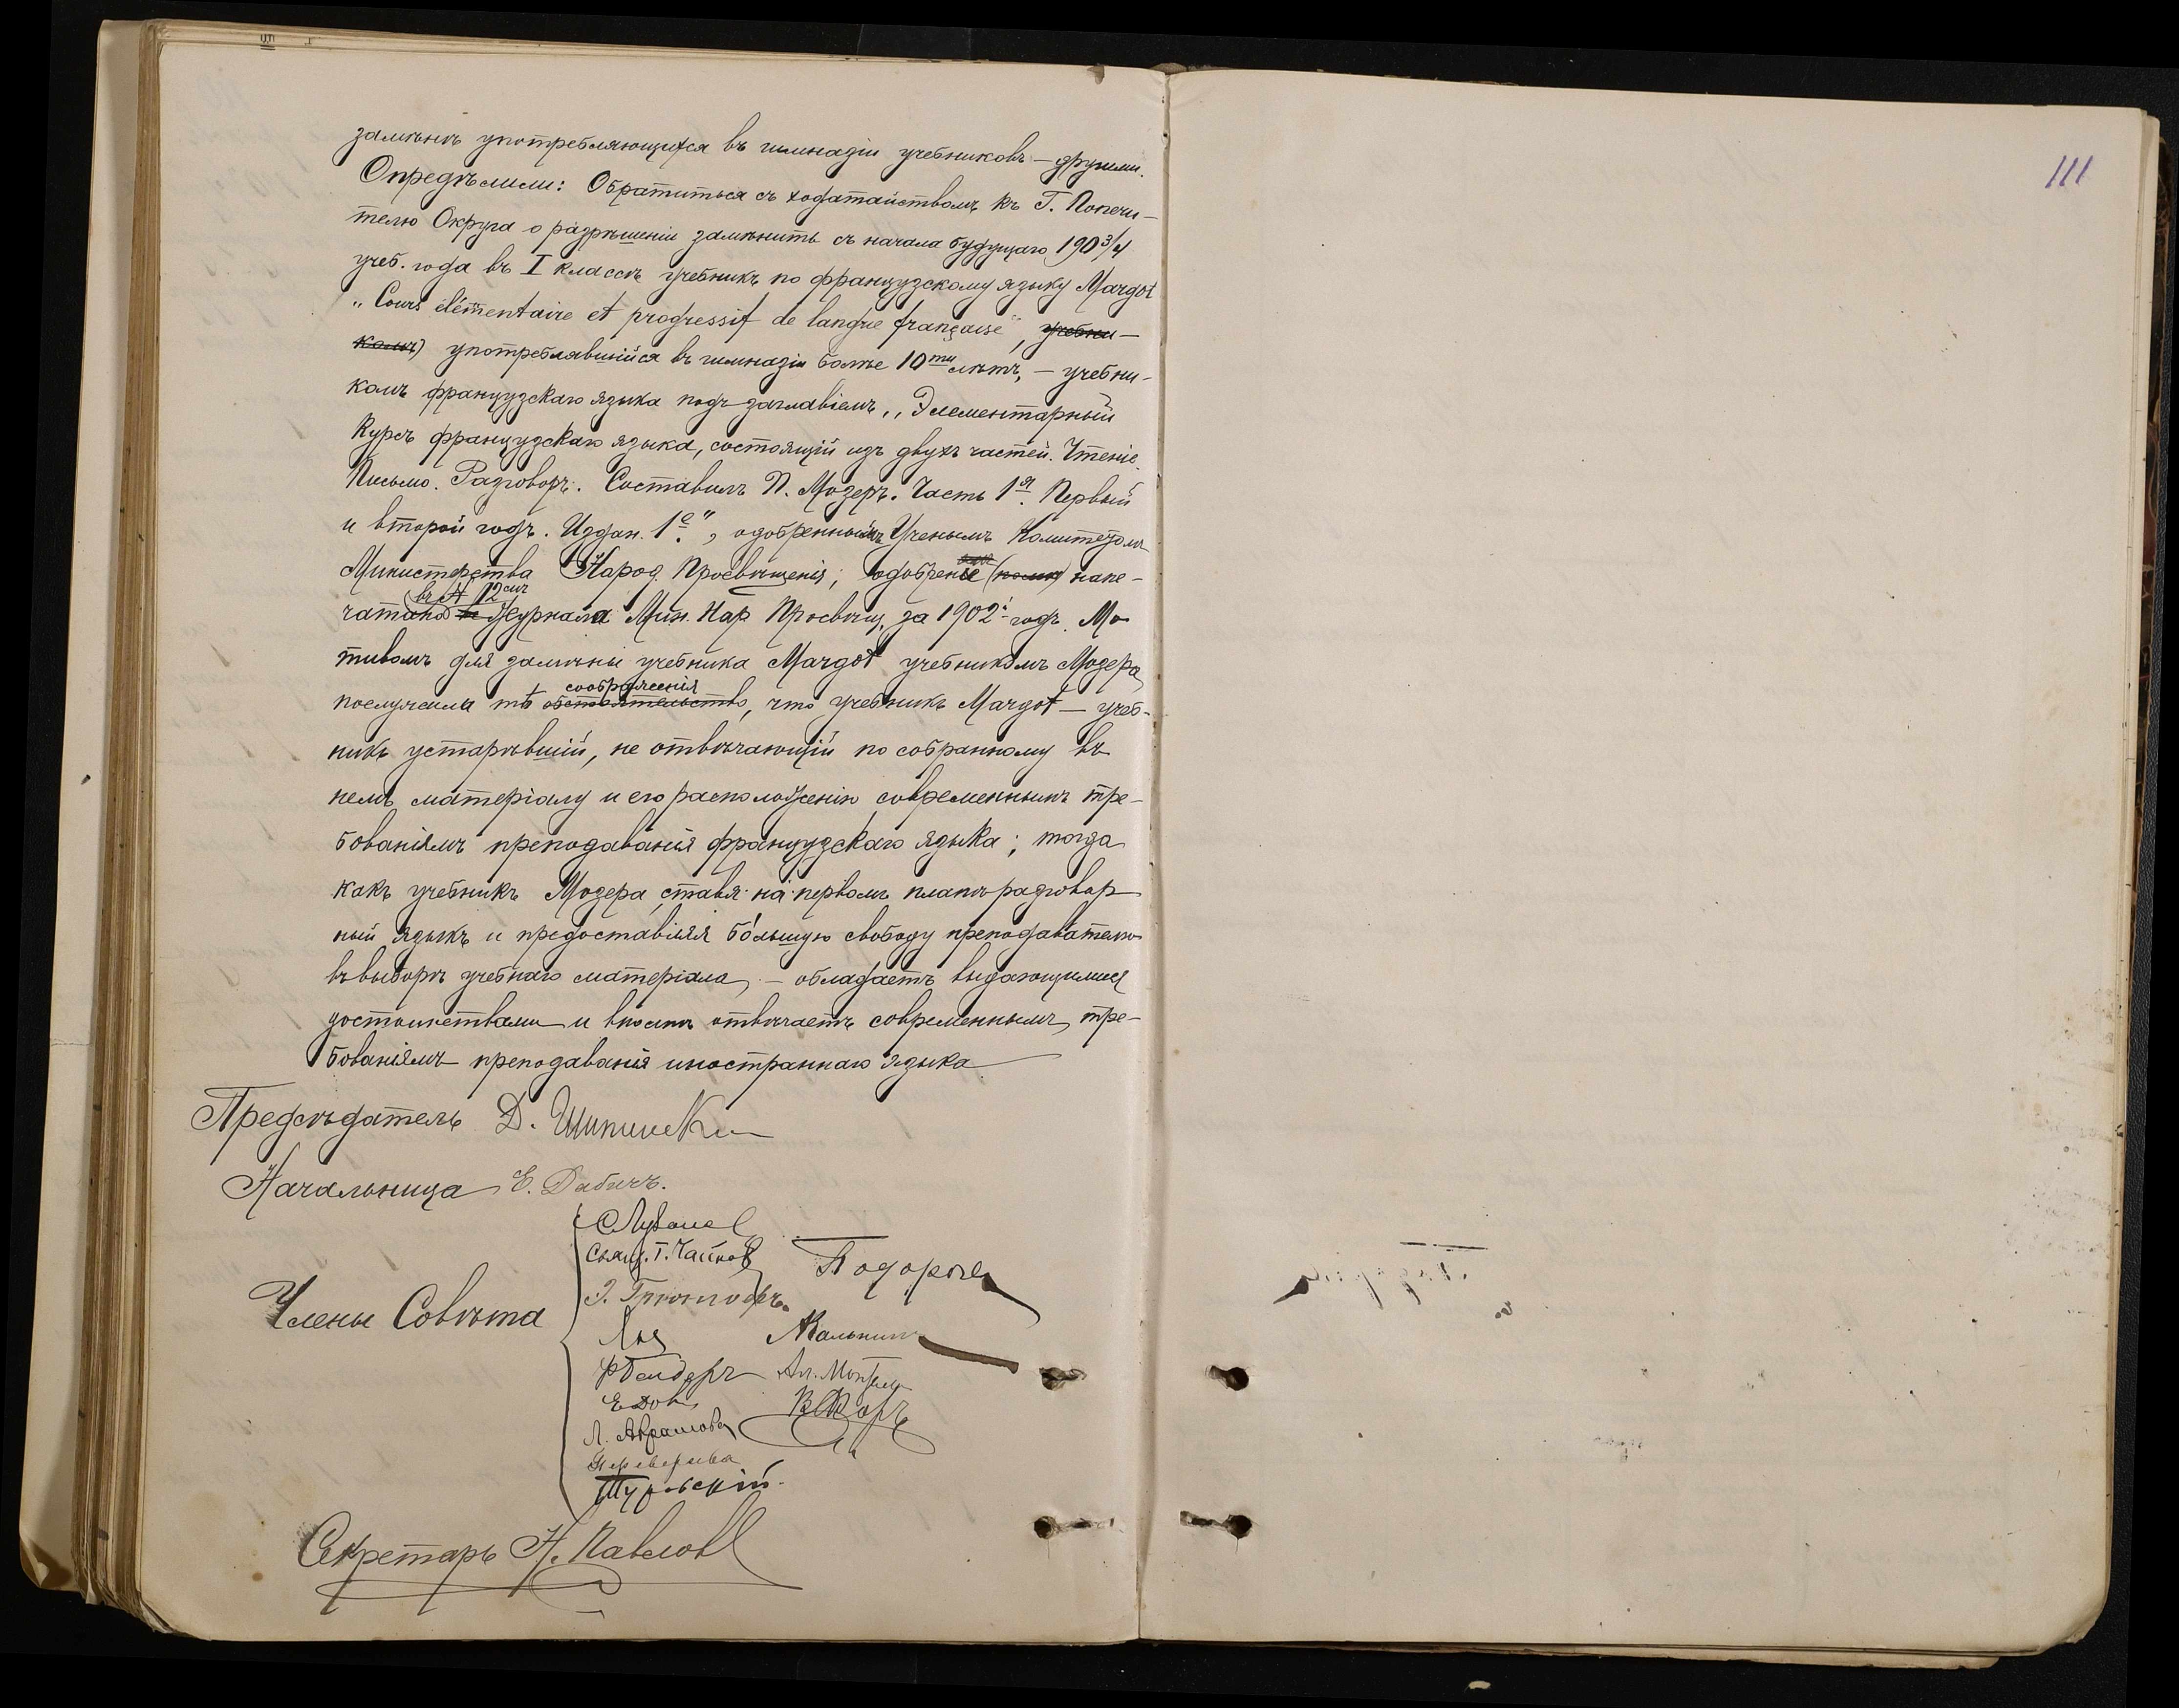 замѣнѣ употребляющихся въ гимназіи учебниковъ – другими.
Опредѣлили: Обратиться съ ходатайствомъ къ Г. Попечи-
телю Округа о разрѣшеніи замѣнить съ начала будущаго 190 3/4
учеб. года въ I классѣ учебникъ по французскому языку Margot
„Cours élémentaire et progressif de langue française", учебни-
комъ) употреблявшійся въ гимназіи болѣе 10ти лѣтъ, – учебни-
комъ французскаго языка подъ заглавіемъ „Элементарный
Курсъ французскаго языка, состоящій изъ двухъ частей. Чтеніе.
Письмо. Разговоръ. Составилъ П. Мозеръ. Часть 1я. Первый
и второй годъ. Издан. 1е.", одобреннымъ Ученымъ Комитетомъ
Министерства Народ. Просвѣщенія; одобреніе напе-
въ № 12омъ
чатано Журнала Мин. Нар Просвѣщ. за 1902й годъ. Мо-
тивомъ для замѣны учебника Margot учебникомъ Мозера
соображенія
послужила тѣ обстоятельство, что учебникъ Margot – учеб-
никъ устарѣвшій, не отвѣчающій по собранному въ
немъ матеріалу и его расположенію современнымъ тре-
бованіямъ преподаванія французскаго языка; тогда
какъ учебникъ Мозера, ставя на первомъ планѣ разговор
ный языкъ и предоставляя бо́льшую свободу преподавателю
въ выборѣ учебнаго матеріала, – обладаетъ выдающимися
достоинствами и вполнѣ отвѣчаетъ современнымъ тре-
бованіямъ преподаванія иностраннаго языка
Предсѣдатель Д. Шипински
Начальница Е. Дабичъ.
Свящ. Т. Чайков
Члены Совѣта
Л. Абрамова
Секретарь Н. Павловъ
111